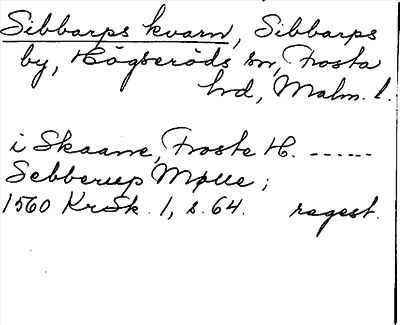 Sibbarps kvarn, Sibbarps
by, Högseröds sn, Frosta
hd, Malm. l.
i Skaane, Froste H. ------
Sebberup Mølle;
1560 KrSk. 1, s. 64. regest.